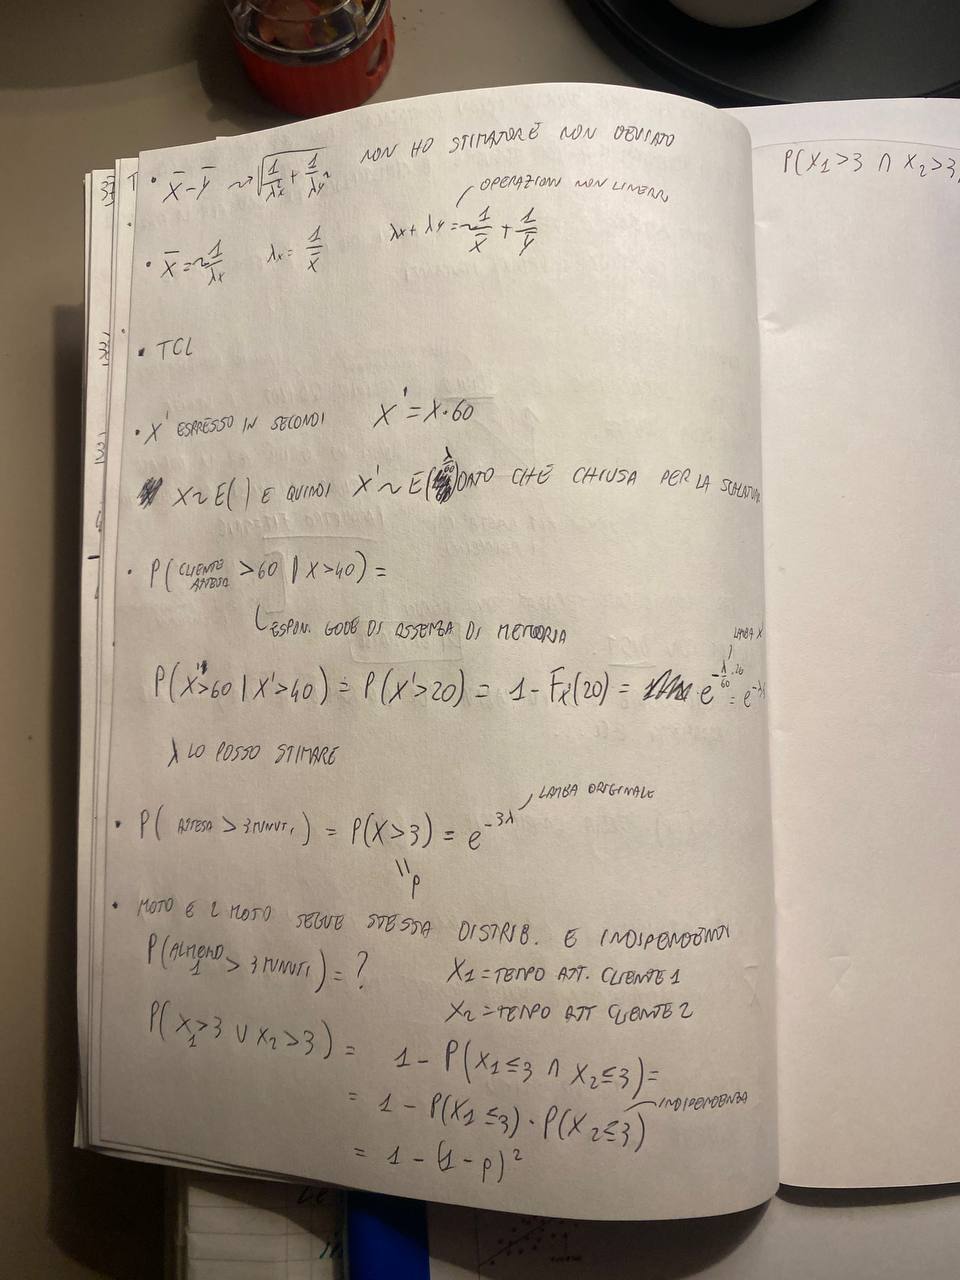 • X̄ - Ȳ ~> √(1/λx² + 1/λy²) NON HO STIMATORE NON DEVIATO
OPERAZIONI NON LINEARI
• X̄ = ~ 1/λx λx = 1/X̄ λx + λy = ~ 1/X̄ + 1/Ȳ
• TCL
• X' ESPRESSO IN SECONDI X' = X·60
X ~ E( ) E QUINDI X' ~ E(λ/60) DATO CHÈ CHIUSA PER LA
• P(CLIENTE ATTESA > 60 | X > 40) =
ESPON. GODE DI ASSENZA DI MEMORIA
LAMBA X
P(X' > 60 | X' > 40) = P(X' > 20) = 1 - Fx'(20) = e^(-λ/60 · 20) = e^-λ
λ LO POSSO STIMARE
LAMBA ORIGINALE
• P(ATTESA > 3 MINUTI) = P(X > 3) = e^-3λ
= p
• MOTO E 2 MOTO SEGUE STESSA DISTRIB. E INDIPENDENTI
P(ALMENO 1 > 3 MINUTI) = ? X1 = TEMPO ATT. CLIENTE 1
X2 = TEMPO ATT CLIENTE 2
P(X1 > 3 ∪ X2 > 3) = 1 - P(X1 ≤ 3 ∩ X2 ≤ 3) =
= 1 - P(X1 ≤ 3) · P(X2 ≤ 3) INDIPENDENZA
= 1 - (1 - p)²
P(X1 > 3 ∩ X2 > 3